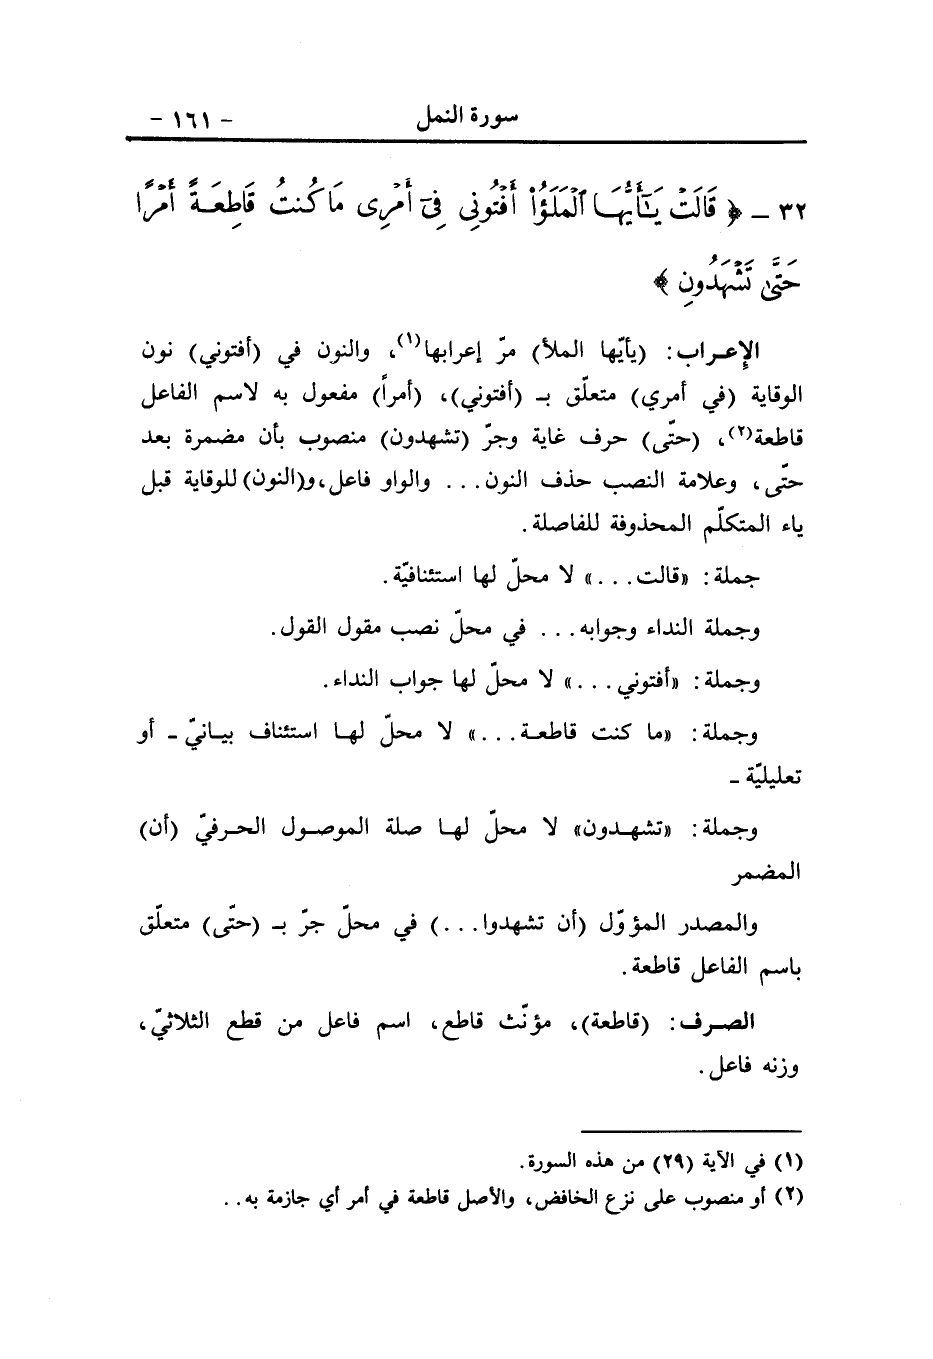 سورة النمل - ١٦١ -
٣٢ - ﴿ قَالَتْ يَٰٓأَيُّهَا ٱلْمَلَؤُا۟ أَفْتُونِى فِىٓ أَمْرِى مَا كُنتُ قَاطِعَةً أَمْرًا
حَتَّىٰ تَشْهَدُونِ ﴾
الإعراب: (يأيّها الملأ) مرّ إعرابها(١)، والنون في (أفتوني) نون
الوقاية (في أمري) متعلّق بـ (أفتوني)، (أمراً) مفعول به لاسم الفاعل
قاطعة(٢)، (حتّى) حرف غاية وجرّ (تشهدون) منصوب بأن مضمرة بعد
حتّى، وعلامة النصب حذف النون... والواو فاعل، و(النون) للوقاية قبل
ياء المتكلّم المحذوفة للفاصلة.
جملة: «قالت...» لا محلّ لها استئنافيّة.
وجملة النداء وجوابه... في محلّ نصب مقول القول.
وجملة: «أفتوني...» لا محلّ لها جواب النداء.
وجملة: «ما كنت قاطعة...» لا محلّ لها استئناف بيانيّ - أو
تعليليّة -
وجملة: «تشهدون» لا محلّ لها صلة الموصول الحرفيّ (أن)
المضمر
والمصدر المؤوّل (أن تشهدوا...) في محلّ جرّ بـ (حتّى) متعلّق
باسم الفاعل قاطعة.
الصرف: (قاطعة)، مؤنّث قاطع، اسم فاعل من قطع الثلاثيّ،
وزنه فاعل.
(١) في الآية (٢٩) من هذه السورة.
(٢) أو منصوب على نزع الخافض، والأصل قاطعة في أمر أي جازمة به..